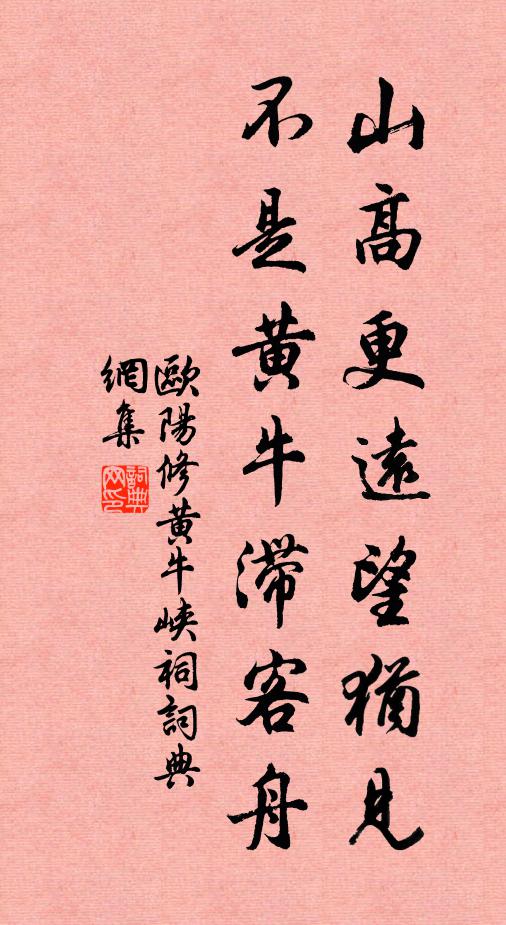 山高更遠望猶見
不是黃牛滯客舟
歐陽修黃牛峽祠詞典
網集
詞典
网印